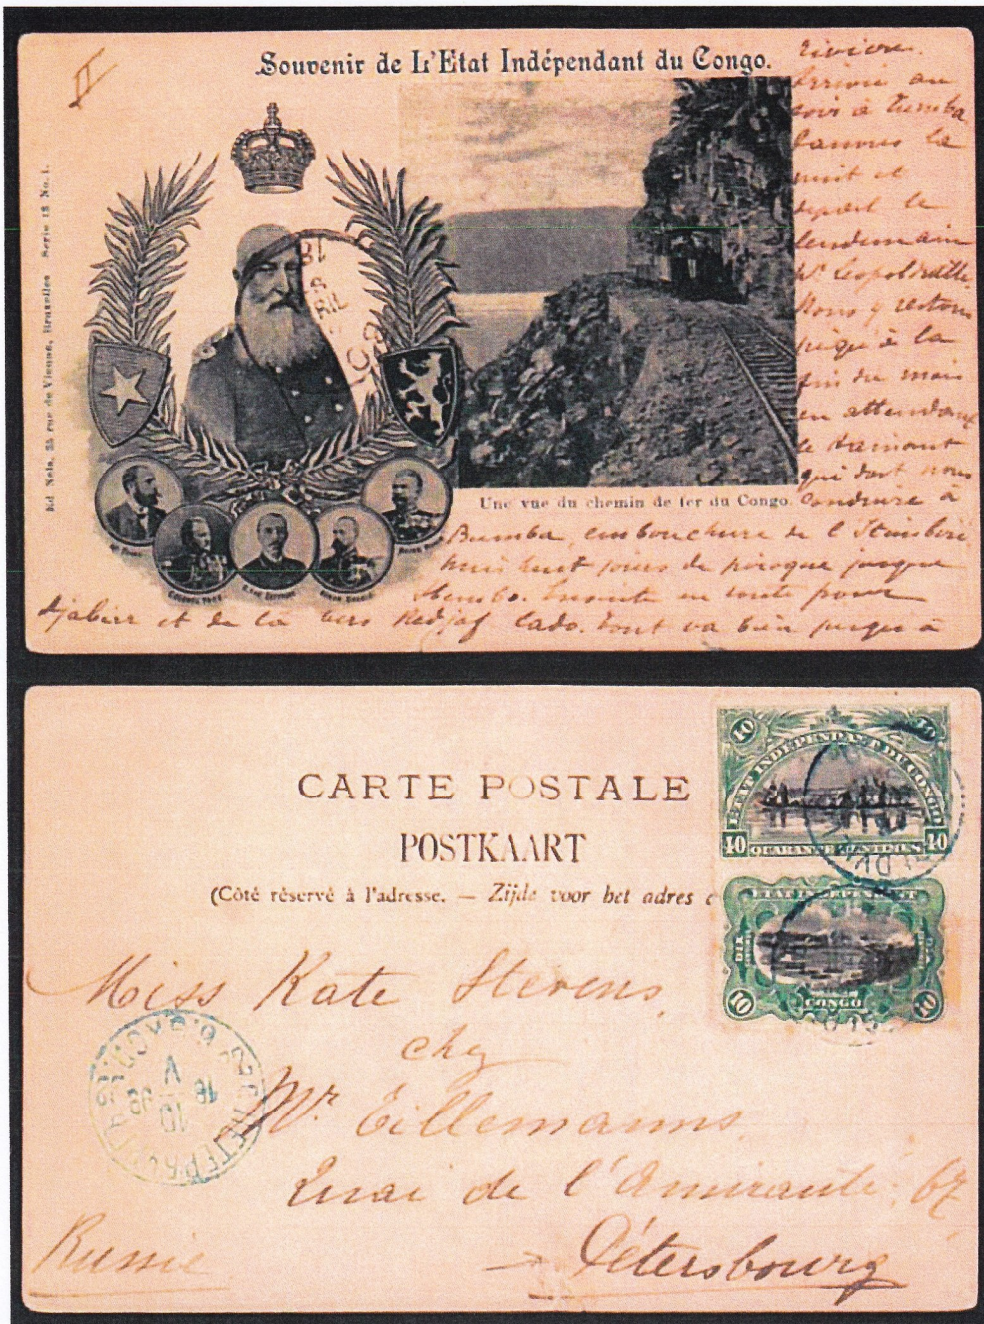 II
Souvenir de L'Etat Indépendant du Congo.
Ed. Nels, 35 rue de Vienne, Bruxelles Serie 13 No. 1.
Une vue du chemin de fer du Congo.
rivière.
Arrivé au
soir à Tumba
Passons la
nuit et
départ le
lendemain
Nous y restons
jusqu'à la
fin du mois
en attendant
qui doit nous
conduire à
Bumba, embouchure de l'Itimbiri
puis huit jours de pirogue jusque
Ensuite en route pour
Djabir et de là vers Redjaf Lado. Tout va bien jusqu'à
CARTE POSTALE
POSTKAART
(Côté réservé à l'adresse. — Zijde voor het adres
40 40
ETAT INDEPENDANT DU CONGO
40 QUARANTE CENTIMES 40
ETAT INDEPENDANT
DIX
10 CONGO 10
Miss Kate Stevens,
chez
Mr. Eillemanns,
Quai de l'Amirauté, 67
Pétersbourg
Russie